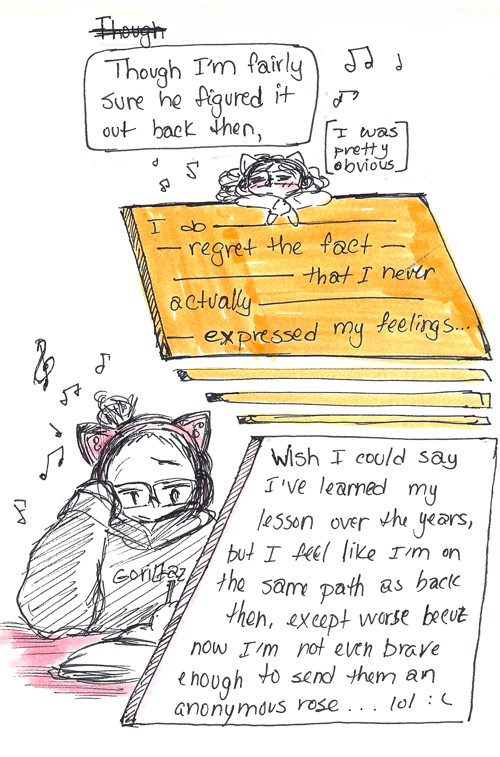 Though
Though I'm fairly
sure he figured it
out back then,
I was
pretty
obvious
I do
regret the fact
that I never
actually
expressed my feelings...
Wish I could say
I've learned my
lesson over the years,
but I feel like I'm on
the same path as back
then, except worse becuz
now I'm not even brave
enough to send them an
anonymous rose... lol :C
Gorillaz